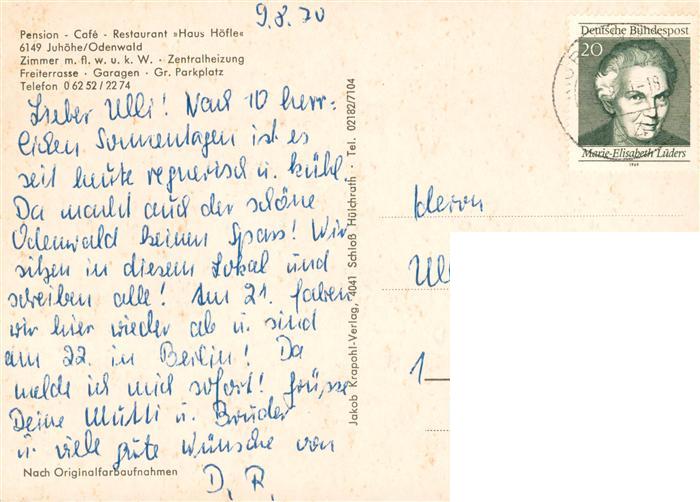 9.8.70
Pension - Café - Restaurant »Haus Höfle«
6149 Juhöhe/Odenwald
Zimmer m. fl. w. u. k. W. · Zentralheizung
Freiterrasse · Garagen · Gr. Parkplatz
Telefon 0 62 52 / 22 74
Lieber Ulli! Nach 10 herr-
lichen Sonnentagen ist es
seit heute regnerisch u. kühl.
Da macht auch der schöne
Odenwald keinen Spass! Wir
sitzen in diesem Lokal und
schreiben alle! Am 21. fahren
wir hier wieder ab u. sind
am 22. in Berlin! Da
melde ich mich sofort! Grüsse
Deine Mutti u. Bruder
u. viele gute Wünsche von
D. R.
Nach Originalfarbaufnahmen
Jakob Krapohl-Verlag, 4041 Schloß Hülchrath · Tel. 02182/7104
Deutsche Bundespost
20
Marie-Elisabeth Lüders
1969
Herrn
Ull
1